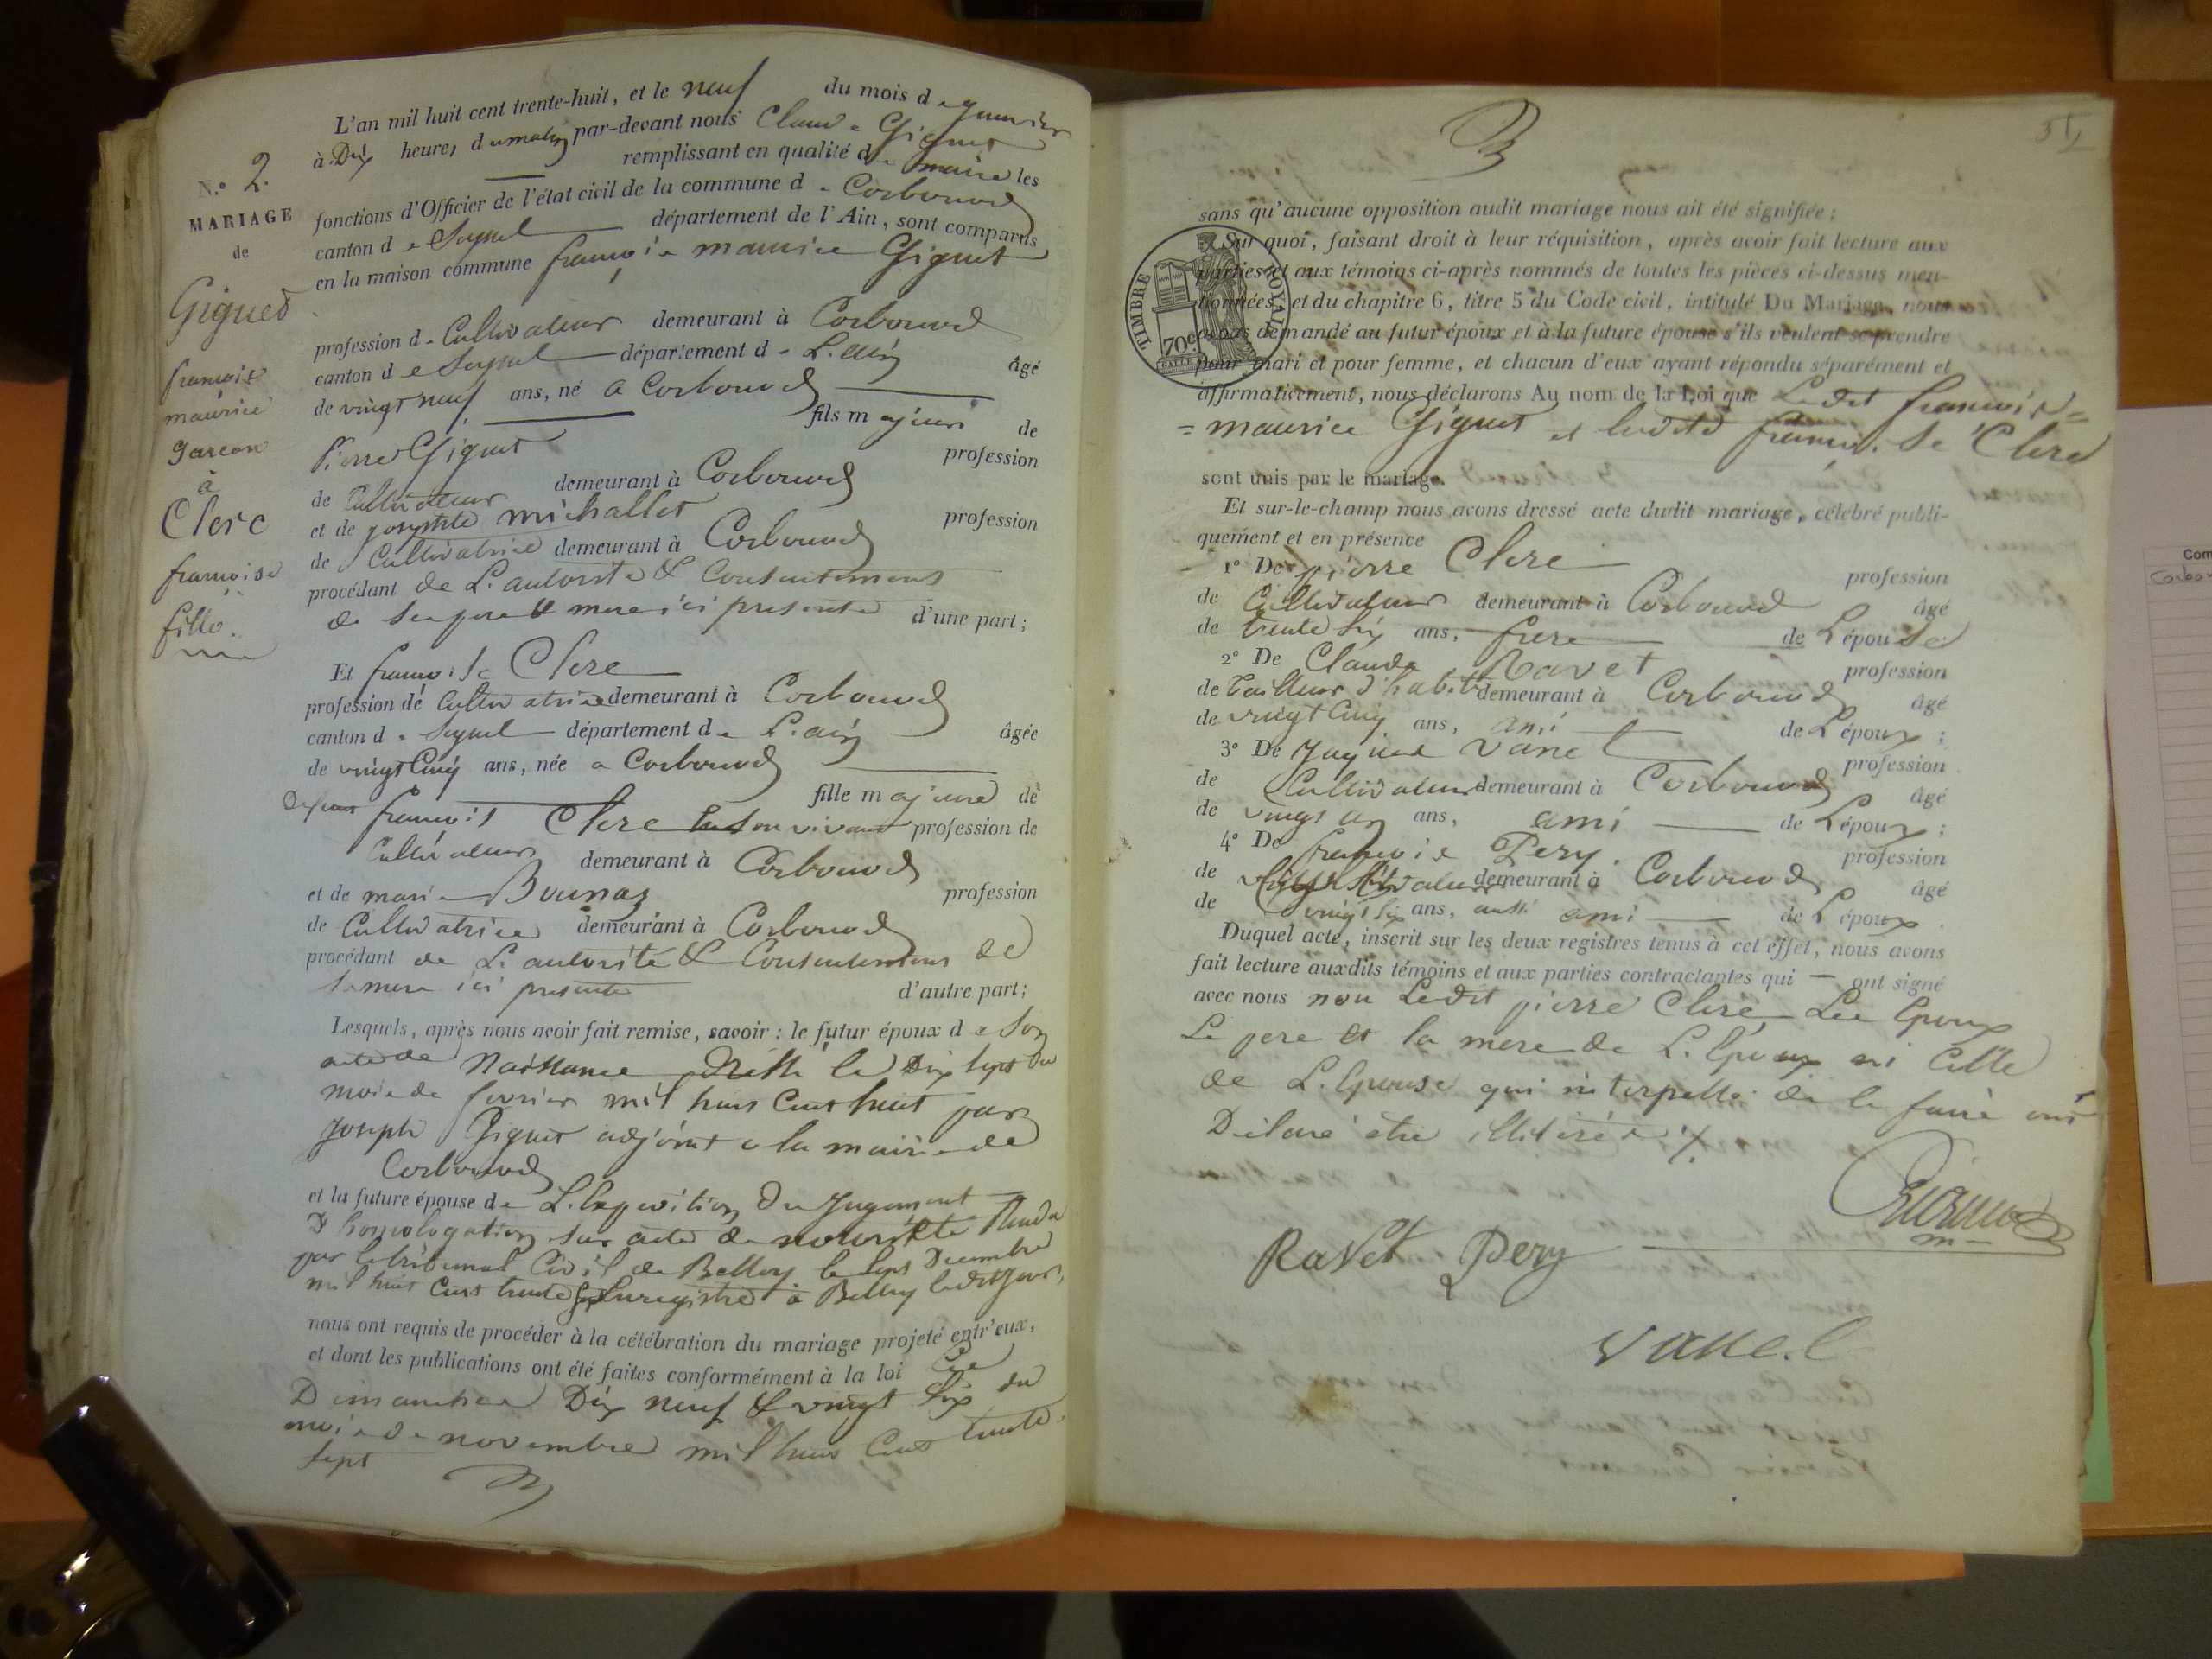 N.° 2.
MARIAGE
de
Giguet
françois
maurice
garcon
à
Clerc
francoise
fille.
L'an mil huit cent trente-huit, et le neuf du mois de janvier
à Dix heures du matin par-devant nous Claude Giguet
remplissant en qualité de maire les
fonctions d'Officier de l'état civil de la commune de Corbonod
canton de Seyssel département de l'Ain, sont comparus
en la maison commune françois maurice Giguet
profession de Cultivateur demeurant à Corbonod
canton de Seyssel département de L'ain âgé
de vingt neuf ans, né a Corbonod
fils majeur de
Pierre Giguet profession
de Cultivateur demeurant à Corbonod
et de josephte michallet profession
de Cultivatrice demeurant à Corbonod
procédant de L'autorité & Consentement
de ses pere & mere ici presents d'une part;
Et francoise Clerc
profession de Cultivatrice demeurant à Corbonod
canton de Seyssel département de L'ain âgée
de vingt Cinq ans, née a Corbonod
fille majeure de
Defunt francois Clerc en son vivant profession de
Cultivateur demeurant à Corbonod
et de marie Bounaz profession
de Cultivatrice demeurant à Corbonod
procédant de L'autorité & Consentement de
sa mere ici presente d'autre part;
Lesquels, après nous avoir fait remise, savoir: le futur époux de Son
acte de Naissance Dressé le Dix sept du
mois de fevrier mil huit Cent huit par
Joseph Giguet adjoint a la mairie de
Corbonod
et la future épouse de L'Expedition Du Jugement
D'homologation sur acte de notoriété Rendu
par le tribunal Civil de Belley le sept Decembre
mil huit Cent trente Enregistré à Belley ledit jour,
nous ont requis de procéder à la célébration du mariage projeté entr'eux,
et dont les publications ont été faites conformément à la loi Les
Dimanches Dix neuf & vingt six du
mois de novembre mil huit Cent trente
sept
sans qu'aucune opposition audit mariage nous ait été signifiée;
Sur quoi, faisant droit à leur réquisition, après avoir fait lecture aux
parties et aux témoins ci-après nommés de toutes les pièces ci-dessus men-
tionnées, et du chapitre 6, titre 5 du Code civil, intitulé Du Mariage, nous
avons demandé au futur époux et à la future épouse s'ils veulent se prendre
pour mari et pour femme, et chacun d'eux ayant répondu séparément et
affirmativement, nous déclarons Au nom de la Loi que Ledit francois=
=maurice Giguet et ladite francoise Clerc
sont unis par le mariage.
Et sur-le-champ nous avons dressé acte dudit mariage, célébré publi-
quement et en présence
1° De pierre Clerc profession
de Cultivateur demeurant à Corbonod âgé
de trente six ans, frere de L'épouse
2° De Claude Ravet profession
de tailleur d'habits demeurant à Corbonod âgé
de vingt Cinq ans, ami de L'époux;
3° De Jaques Vanel profession
de Cultivateur demeurant à Corbonod âgé
de vingt un ans, ami de L'époux;
4° De francois Pery. profession
de Cultivateur demeurant à Corbonod âgé
de vingt six ans, aussi ami de L'époux.
Duquel acte, inscrit sur les deux registres tenus à cet effet, nous avons
fait lecture auxdits témoins et aux parties contractantes qui ont signé
avec nous non Ledit pierre Clerc, Les Epoux
Le pere et la mere de L'Epoux ni Celle
de L'Epouse qui interpellés de le faire ont
Déclaré être illitérés.
Ravet Pery
Vanel
TIMBRE ROYAL
70c